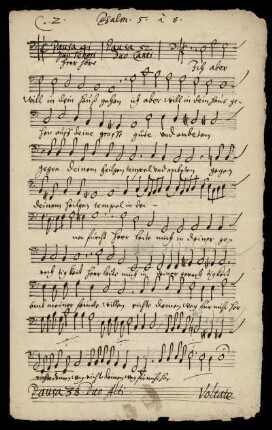 C. 2. Psalm. 5. à 8.
Pausa 41 Pausa 52
Duo Canti
Herr höre Ich aber
will in dein Hauß gehen ich aber will in dein Hauß ge-
hen auff deine grosse güte und anbeten
gegen deinem heiligen tempel und anbeten gegen
deinem heiligen tempel in dei-
ner furcht Herr leite mich in deiner ge-
rech tig keit Herr leite mich in deiner gerech tigkeit
umb meiner feinde willen richte deinen weg für mich her
richte deinen weg richte deinen weg für mich her
Pausa 38 Duo Alti Voltate